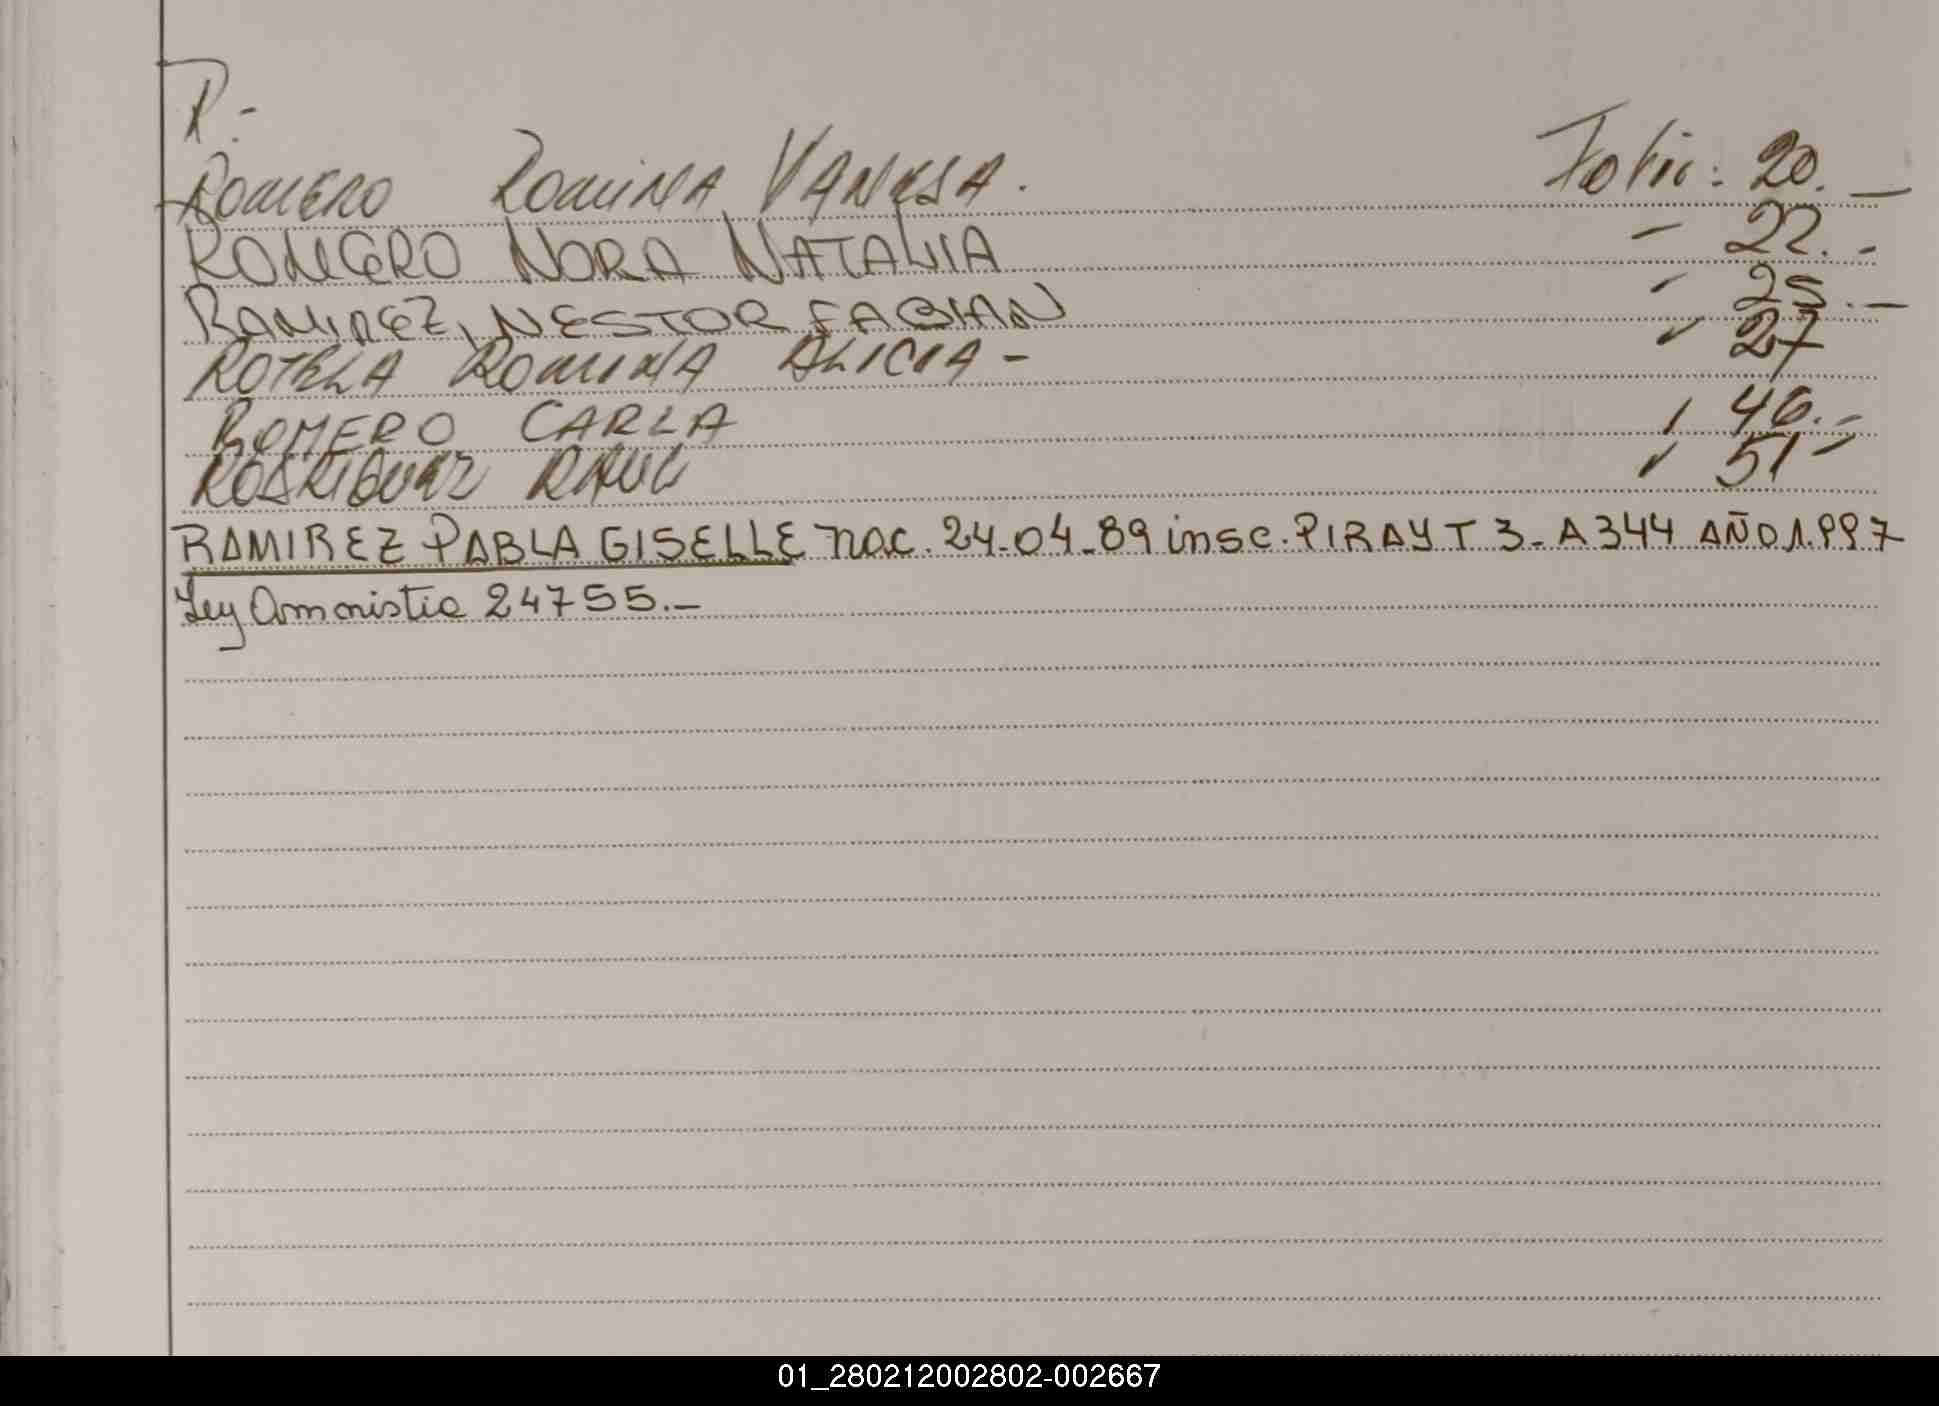 R.-
ROMERO ROMINA VANESA. Folio: 20.-
ROMERO NORA NATALIA - 22.-
RAMIREZ, NESTOR FABIAN - 25.-
ROTELA ROMINA ALICIA- 27
ROMERO CARLA 46.-
RODRIGUEZ RAUL 51-
RAMIREZ PABLA GISELLE nac. 24-04-89 insc. PIRAY T 3- A 344 AÑO 1.997
Ley Amnistia 24755.-
01_280212002802-002667